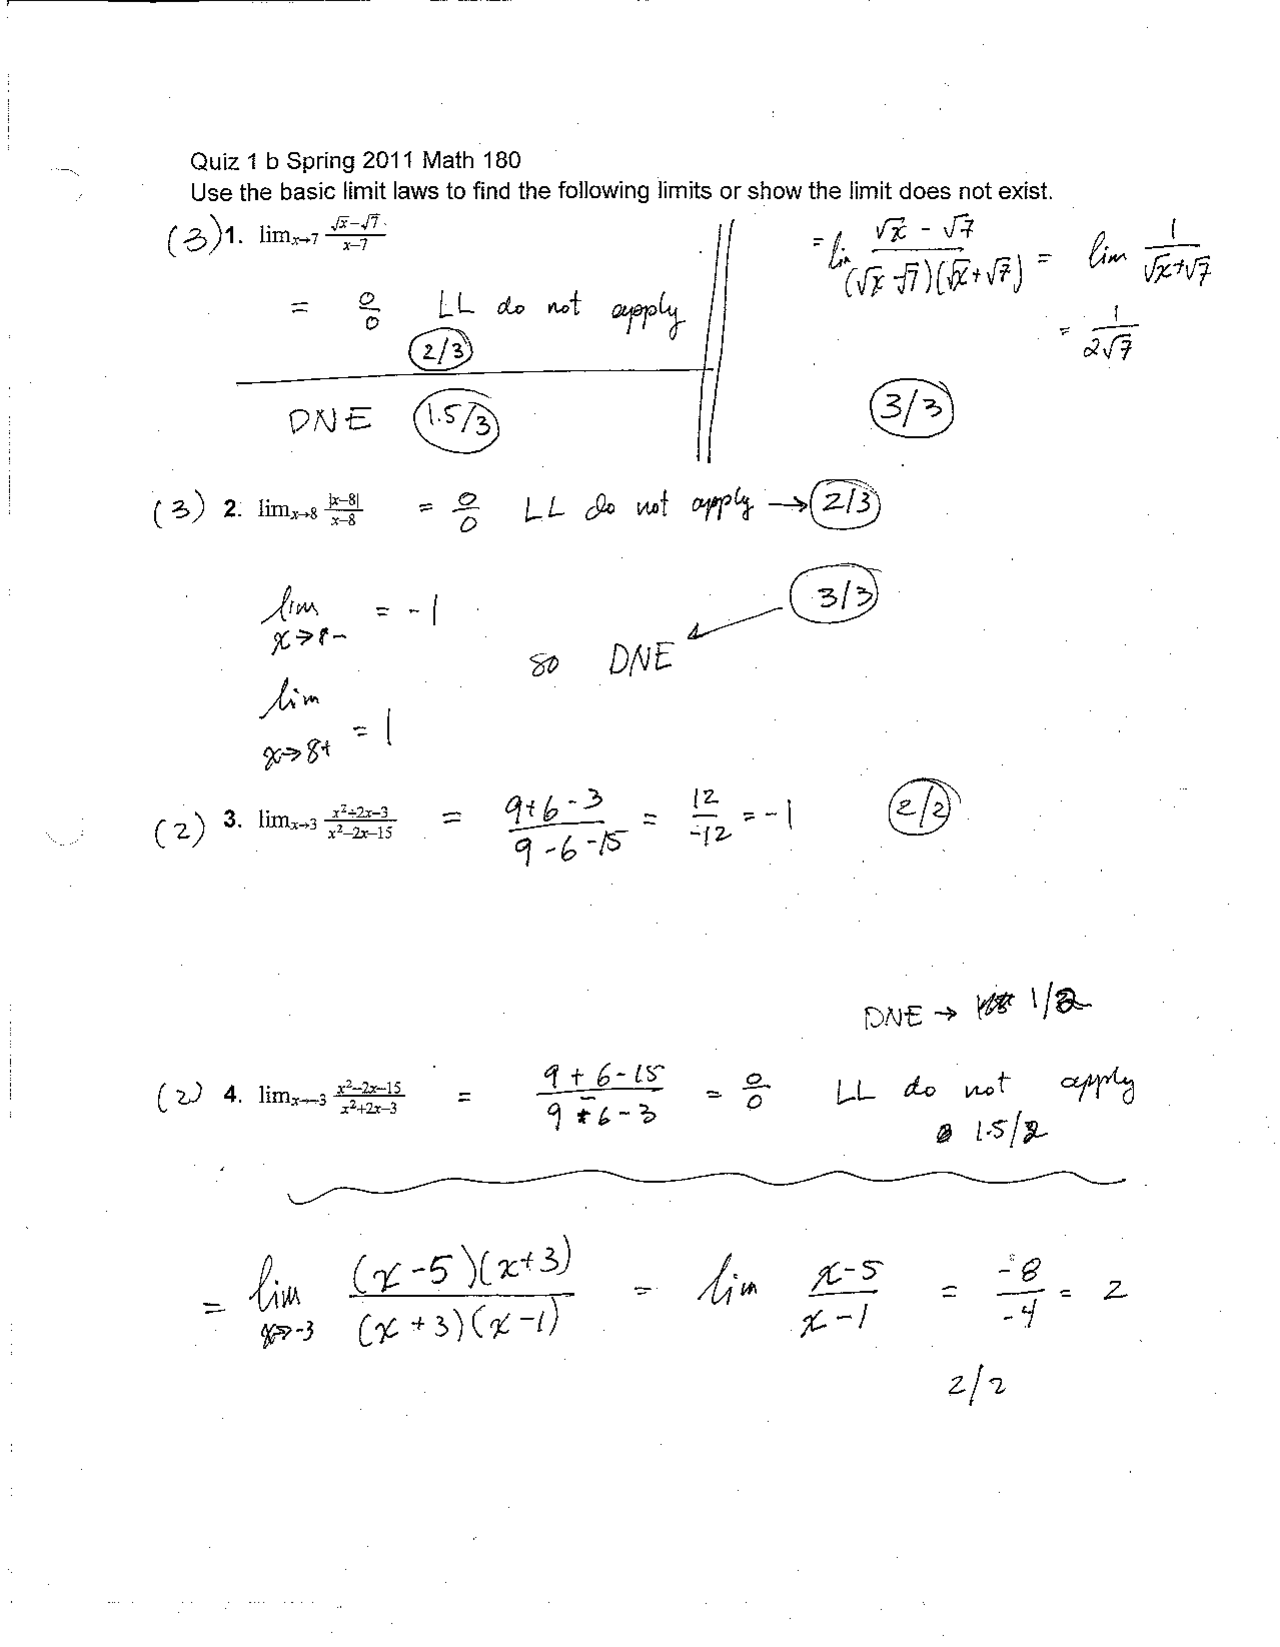 Quiz 1 b Spring 2011 Math 180
Use the basic limit laws to find the following limits or show the limit does not exist.
(3) 1. lim x→7 (√x−√7)/(x−7)
= 0/0 LL do not apply
2/3
DNE 1.5/3
= lim (√x − √7)/((√x − √7)(√x + √7)) = lim 1/(√x+√7)
= 1/(2√7)
3/3
(3) 2. lim x→8 |x−8|/(x−8) = 0/0 LL do not apply → 2/3
3/3
lim x→8− = −1
so DNE
lim x→8+ = 1
(2) 3. lim x→3 (x²+2x−3)/(x²−2x−15) = (9+6−3)/(9−6−15) = 12/−12 = −1 2/2
DNE → 1/2
(2) 4. lim x→−3 (x²−2x−15)/(x²+2x−3) = (9+6−15)/(9−6−3) = 0/0 LL do not apply
1.5/2
= lim x→−3 ((x−5)(x+3))/((x+3)(x−1)) = lim (x−5)/(x−1) = −8/−4 = 2
2/2